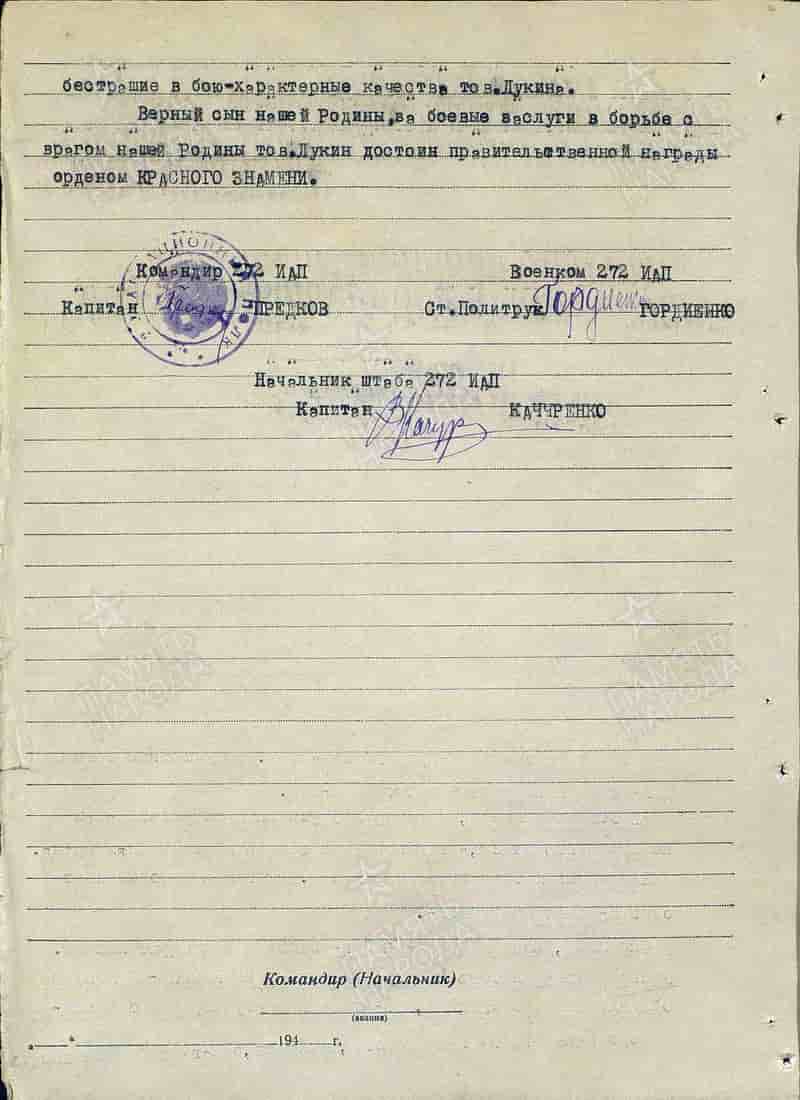 бестрашие в бою-характерные качества тов.Лукина.
Верный сын нашей Родины,за боевые заслуги в борьбе с
врагом нашей Родины тов.Лукин достоин правительственной награды
орденом КРАСНОГО ЗНАМЕНИ.
Командир 272 ИАП Военком 272 ИАП
Капитан ПРЕДКОВ Ст.Политрук ГОРДИЕНКО
Начальник штаба 272 ИАП
Капитан КАЧУРЕНКО
ПАМЯТЬ НАРОДА
Командир (Начальник)
(звание)
„ “ 194 г.